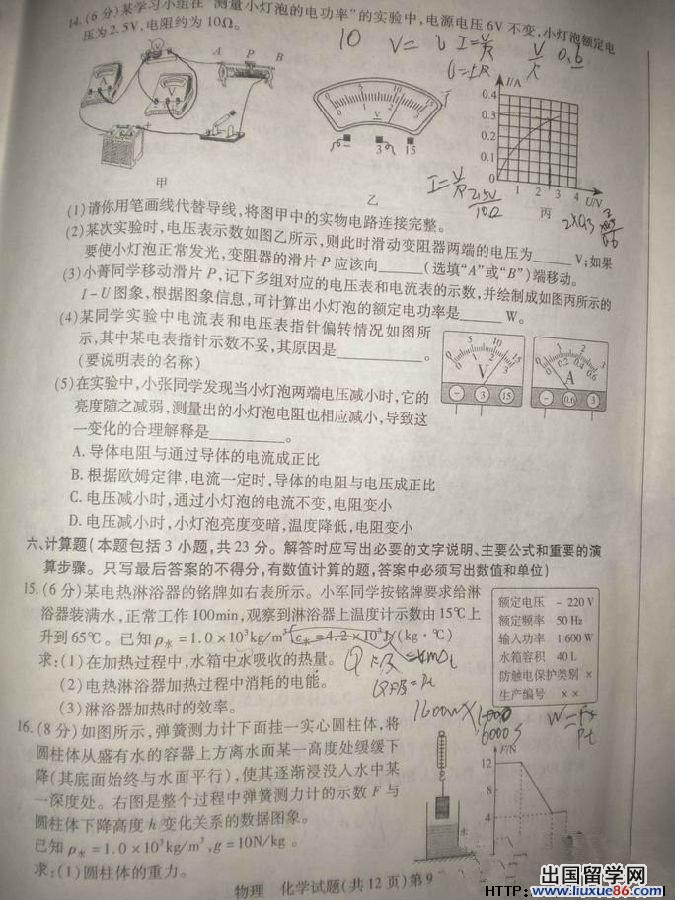 14.(6分)某学习小组在"测量小灯泡的电功率"的实验中,电源电压6V不变,小灯泡额定电
压为2.5V,电阻约为10Ω。
A P B
甲
乙
丙
I/A
0.4
0.3
0.2
0.1
0
1 2 3 4 U/V
(1)请你用笔画线代替导线,将图甲中的实物电路连接完整。
(2)某次实验时,电压表示数如图乙所示,则此时滑动变阻器两端的电压为______V;如果
要使小灯泡正常发光,变阻器的滑片P应该向______(选填"A"或"B")端移动。
(3)小菁同学移动滑片P,记下多组对应的电压表和电流表的示数,并绘制成如图丙所示的
I-U图象,根据图象信息,可计算出小灯泡的额定电功率是______W。
(4)某同学实验中电流表和电压表指针偏转情况如图所
示,其中某电表指针示数不妥,其原因是__________。
(要说明表的名称)
(5)在实验中,小张同学发现当小灯泡两端电压减小时,它的
亮度随之减弱,测量出的小灯泡电阻也相应减小,导致这
一变化的合理解释是__________。
A.导体电阻与通过导体的电流成正比
B.根据欧姆定律,电流一定时,导体的电阻与电压成正比
C.电压减小时,通过小灯泡的电流不变,电阻变小
D.电压减小时,小灯泡亮度变暗,温度降低,电阻变小
六、计算题(本题包括3小题,共23分。解答时应写出必要的文字说明、主要公式和重要的演
算步骤。只写最后答案的不得分,有数值计算的题,答案中必须写出数值和单位)
15.(6分)某电热淋浴器的铭牌如右表所示。小军同学按铭牌要求给淋
浴器装满水,正常工作100min,观察到淋浴器上温度计示数由15℃上
升到65℃。已知ρ水=1.0×10³kg/m³[c水=4.2×10³J/(kg·℃)
求:(1)在加热过程中,水箱中水吸收的热量。
(2)电热淋浴器加热过程中消耗的电能。
(3)淋浴器加热时的效率。
额定电压 ~220V
额定频率 50Hz
输入功率 1600W
水箱容积 40L
防触电保护类别 ×
生产编号 ××
16.(8分)如图所示,弹簧测力计下面挂一实心圆柱体,将
圆柱体从盛有水的容器上方离水面某一高度处缓缓下
降(其底面始终与水面平行),使其逐渐浸没入水中某
一深度处。右图是整个过程中弹簧测力计的示数F与
圆柱体下降高度h变化关系的数据图象。
已知ρ水=1.0×10³kg/m³,g=10N/kg。
求:(1)圆柱体的重力。
F/N
12
8
4
水
物理 化学试题(共12页)第9
出国留学网
HTTP:
www.liuxue86.com